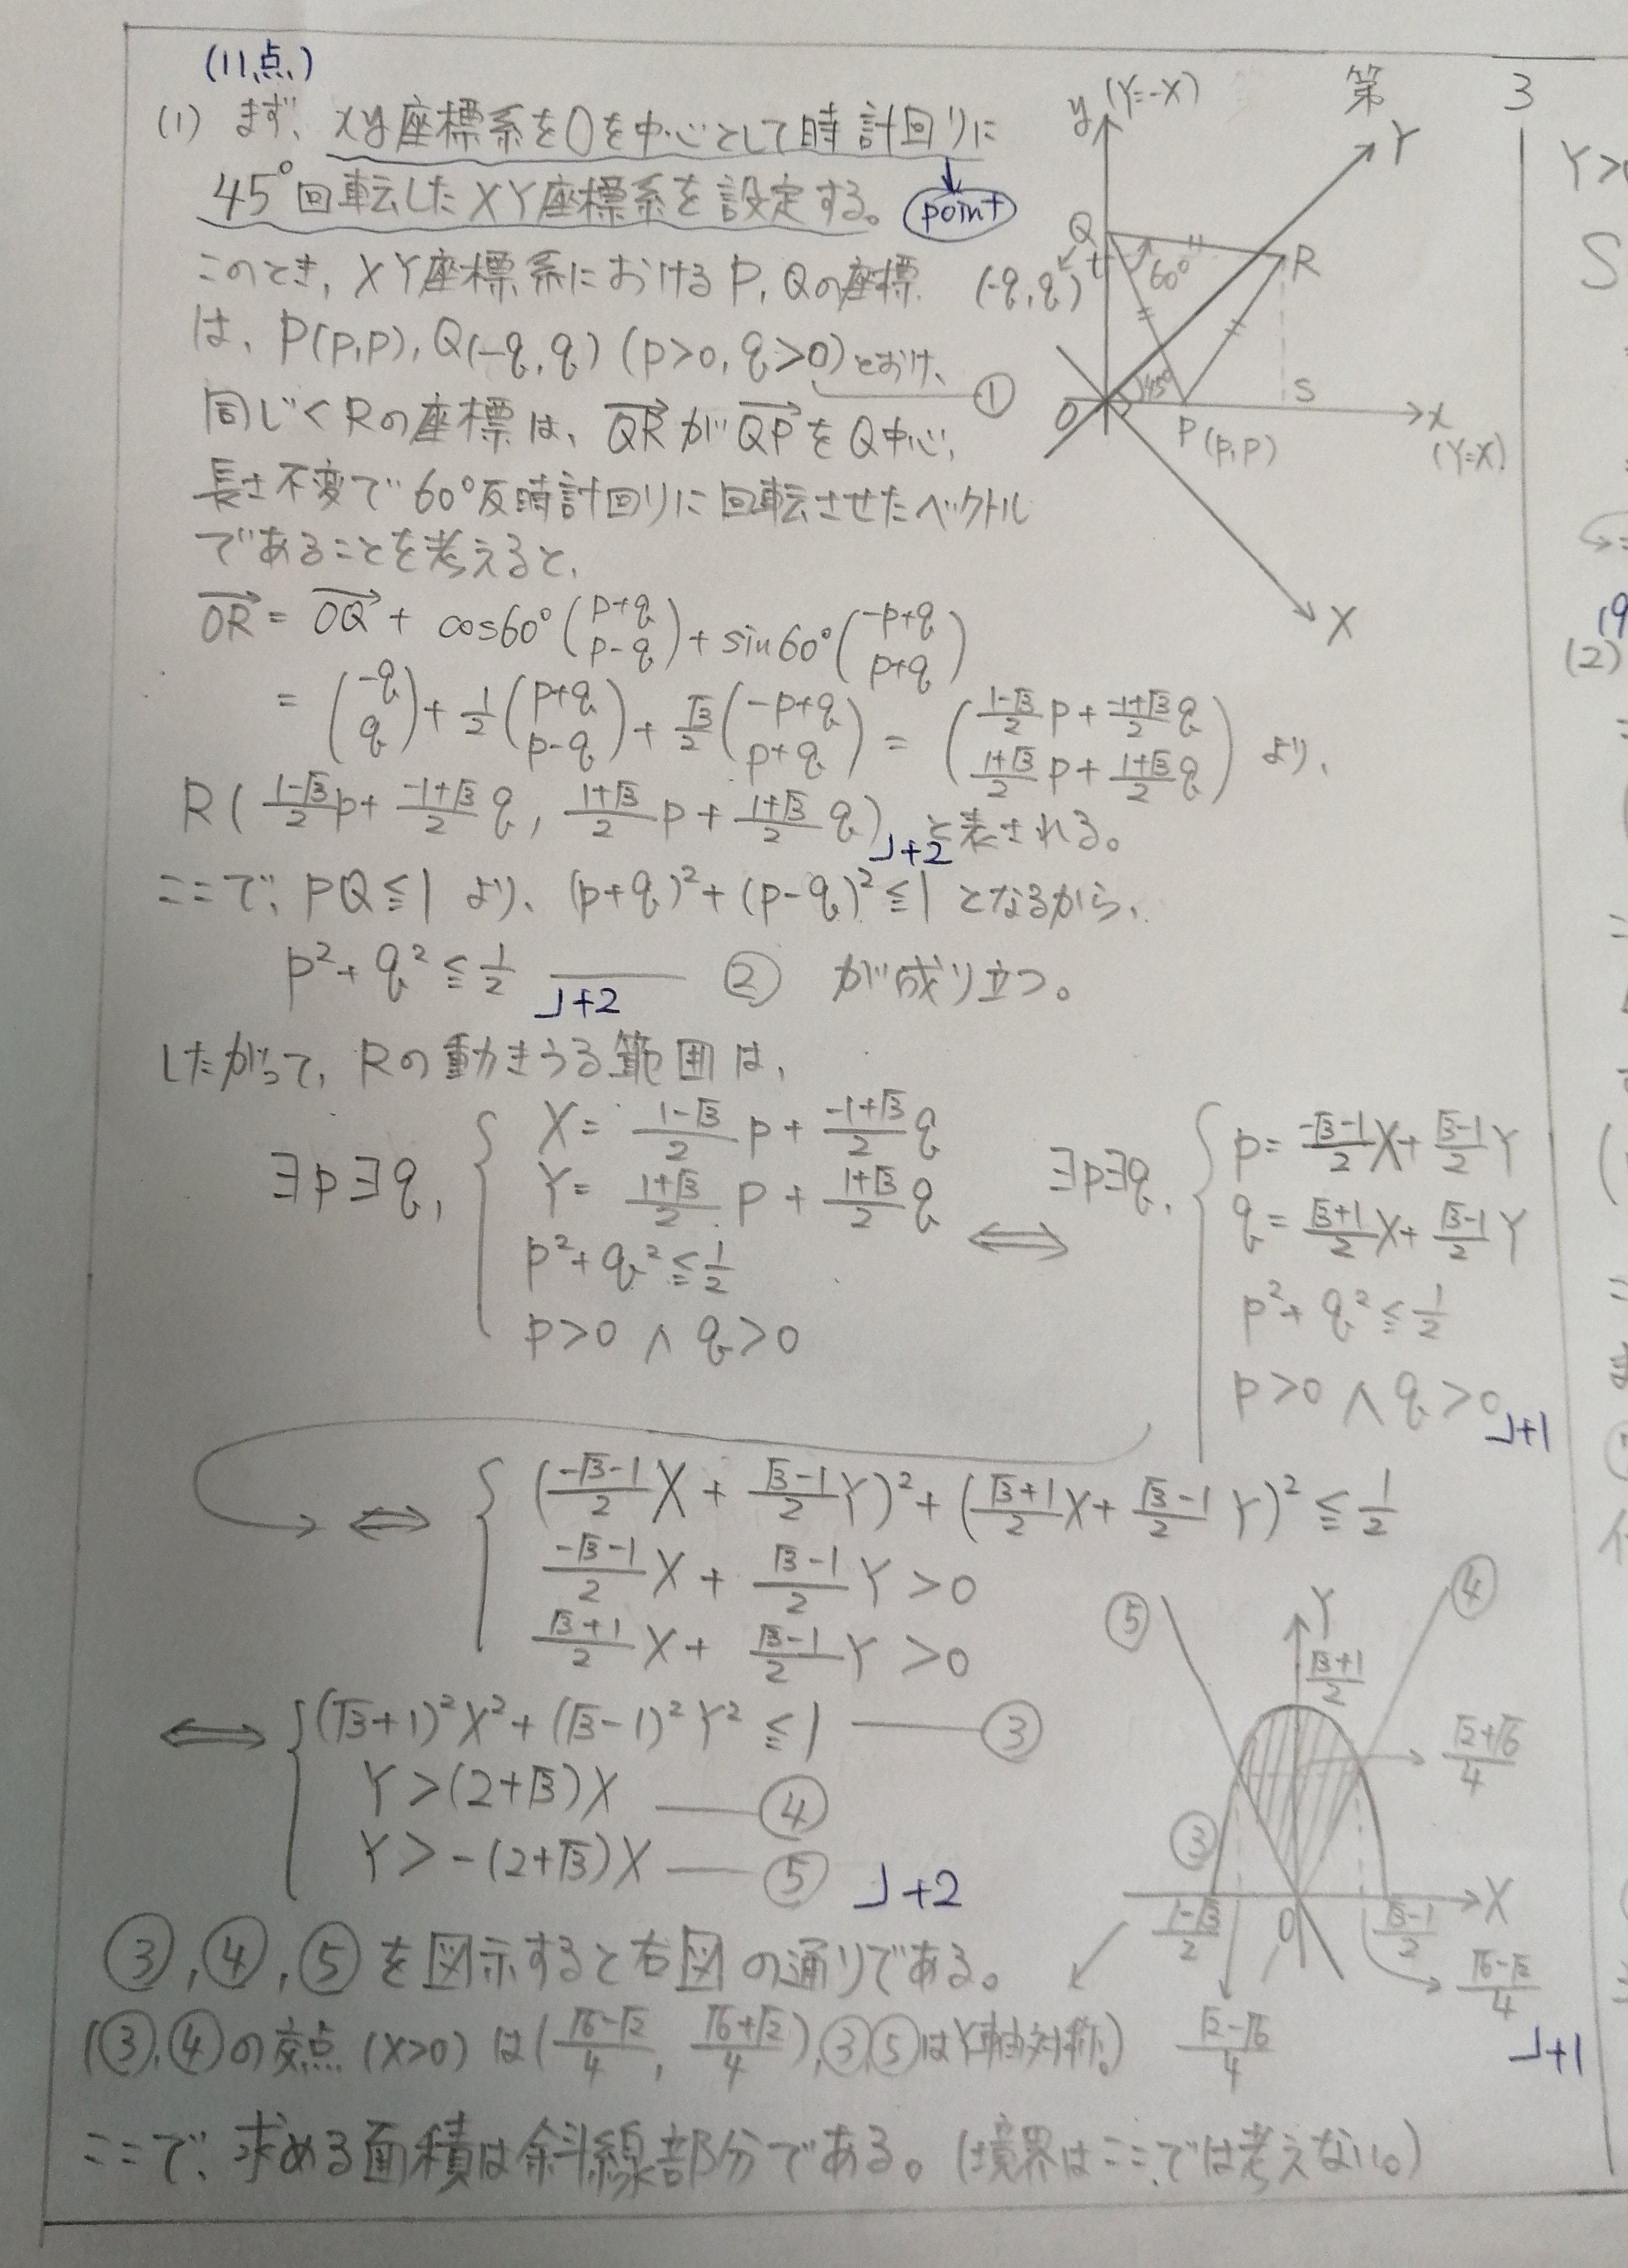 (11点)
(1) まず、xy座標系をOを中心として時計回りに
45°回転したXY座標系を設定する。 point
このとき、XY座標系におけるP, Qの座標
は、P(p,p), Q(-q,q) (p>0, q>0)とおけ、 ①
同じくRの座標は、→QRが→QPをQ中心、
長さ不変で60°反時計回りに回転させたベクトル
であることを考えると、
→OR = →OQ + cos60°(p+q, p-q) + sin60°(-p+q, p+q)
= (-q, q) + 1/2(p+q, p-q) + √3/2(-p+q, p+q) = ((1-√3)/2 p + (-1+√3)/2 q, (1+√3)/2 p + (1+√3)/2 q) より、
R((1-√3)/2 p + (-1+√3)/2 q, (1+√3)/2 p + (1+√3)/2 q) と表される。
」+2
ここで、PQ≦1 より、(p+q)²+(p-q)²≦1 となるから、
p²+q²≦1/2 ― ② が成り立つ。
」+2
したがって、Rの動きうる範囲は、
∃p∃q, { X = (1-√3)/2 p + (-1+√3)/2 q
Y = (1+√3)/2 p + (1+√3)/2 q
p²+q²≦1/2
p>0 ∧ q>0
⟺ ∃p∃q, { p = (-√3-1)/2 X + (√3-1)/2 Y
q = (√3+1)/2 X + (√3-1)/2 Y
p²+q²≦1/2
p>0 ∧ q>0
」+1
⟺ { ((-√3-1)/2 X + (√3-1)/2 Y)² + ((√3+1)/2 X + (√3-1)/2 Y)² ≦ 1/2
(-√3-1)/2 X + (√3-1)/2 Y > 0
(√3+1)/2 X + (√3-1)/2 Y > 0
⟺ { (√3+1)²X² + (√3-1)²Y² ≦ 1 ― ③
Y > (2+√3)X ― ④
Y > -(2+√3)X ― ⑤
」+2
③, ④, ⑤を図示すると右図の通りである。
(③,④の交点 (X>0) は((√6-√2)/4, (√6+√2)/4), ③,⑤はY軸対称。)
ここで、求める面積は斜線部分である。(境界はここでは考えない。)
第 3
y (Y=-X)
Y
Q
(-q,q)
60°
R
45°
O
P(p,p)
S
x
(Y=X)
X
⑤
④
Y
(√3+1)/2
(√2+√6)/4
③
(1-√3)/2
O
(√3-1)/2
X
(√6-√2)/4
(√2-√6)/4
」+1
Y>
S
(2)